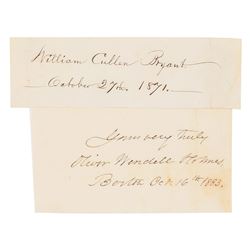 William Cullen Bryant
October 27th. 1871.
Yours very truly
Oliver Wendell Holmes
Boston Oct. 16th 1883.